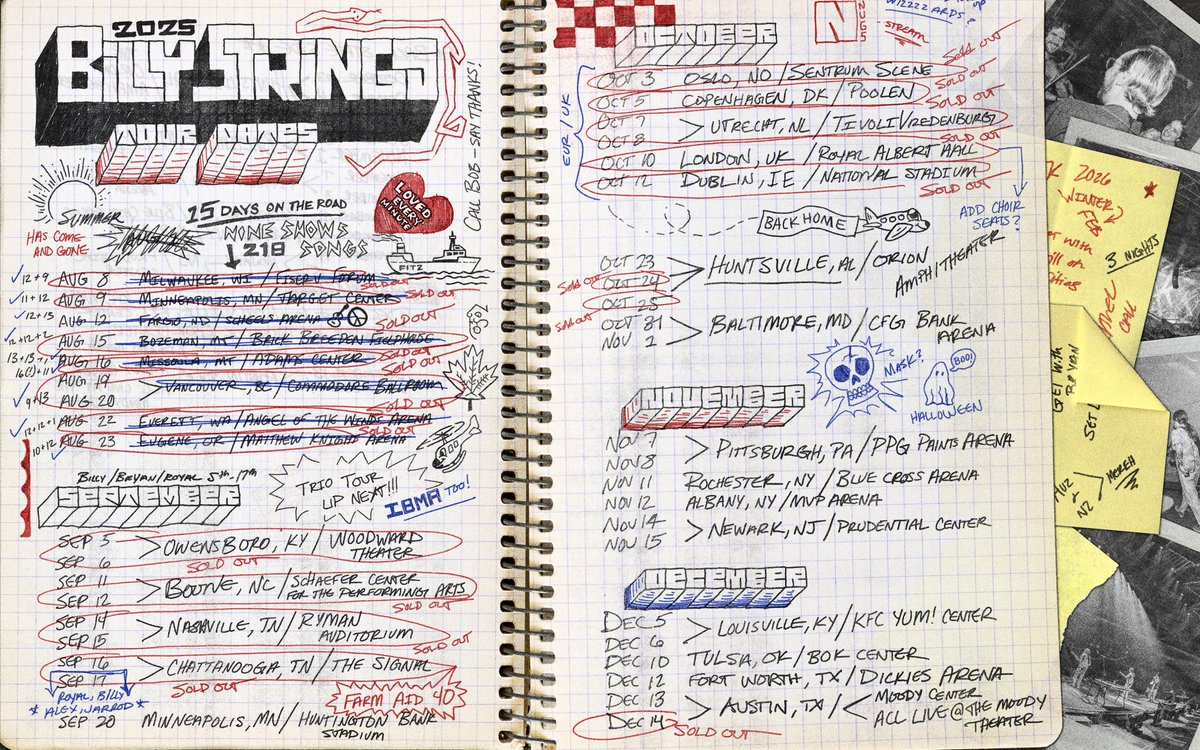 2025
BILLY STRINGS
TOUR DATES
SUMMER
HAS COME
AND GONE
25 DAYS ON THE ROAD
NINE SHOWS
218 SONGS
LOVED
EVERY
MINUTE
FITZ
CALL BOB - SAY THANKS!
12+9 AUG 8 MILWAUKEE, WI / FISERV FORUM SOLD OUT
11+12 AUG 9 MINNEAPOLIS, MN / TARGET CENTER SOLD OUT
12+13 AUG 12 FARGO, ND / SCHEELS ARENA
12+12+2 AUG 15 BOZEMAN, MT / BRICK BREEDEN FIELDHOUSE SOLD OUT
13+13+1 AUG 16 MISSOULA, MT / ADAMS CENTER SOLD OUT
16(?)+11 AUG 19
9+13 AUG 20 > VANCOUVER, BC / COMMODORE BALLROOM SOLD OUT
12+12+1 AUG 22 EVERETT, WA / ANGEL OF THE WINDS ARENA SOLD OUT
10+12 AUG 23 EUGENE, OR / MATTHEW KNIGHT ARENA SOLD OUT
BILLY/BRYAN/ROYAL 5TH-17TH
SEPTEMBER
TRIO TOUR
UP NEXT!!!
IBMA TOO!
SEP 5
SEP 6 > OWENSBORO, KY / WOODWARD THEATER
SOLD OUT
SEP 11
SEP 12 > BOONE, NC / SCHAEFER CENTER FOR THE PERFORMING ARTS
SOLD OUT
SEP 14
SEP 15 > NASHVILLE, TN / RYMAN AUDITORIUM
SOLD OUT
SEP 16
SEP 17 > CHATTANOOGA TN / THE SIGNAL
SOLD OUT
ROYAL, BILLY
* ALEX, JARROD *
FARM AID 40
SEP 20 MINNEAPOLIS, MN / HUNTINGTON BANK STADIUM
OCTOBER
N
NUGS
-STREAM
WIZZZZARDS?
EUR / UK
OCT 3 OSLO, NO / SENTRUM SCENE SOLD OUT
OCT 5 COPENHAGEN, DK / POOLEN SOLD OUT
OCT 7
OCT 8 > UTRECHT, NL / TIVOLIVREDENBURG SOLD OUT
OCT 10 LONDON, UK / ROYAL ALBERT HALL SOLD OUT
OCT 12 DUBLIN, IE / NATIONAL STADIUM
SOLD OUT
ADD CHOIR
SEATS?
BACK HOME
OCT 23
SOLD OUT OCT 24 > HUNTSVILLE, AL / ORION AMPHITHEATER
SOLD OUT OCT 25
OCT 31
NOV 1 > BALTIMORE, MD / CFG BANK ARENA
MASK?
BOO!
HALLOWEEN
NOVEMBER
NOV 7
NOV 8 > PITTSBURGH, PA / PPG PAINTS ARENA
NOV 11 ROCHESTER, NY / BLUE CROSS ARENA
NOV 12 ALBANY, NY / MVP ARENA
NOV 14
NOV 15 > NEWARK, NJ / PRUDENTIAL CENTER
DECEMBER
DEC 5
DEC 6 > LOUISVILLE, KY / KFC YUM! CENTER
DEC 10 TULSA, OK / BOK CENTER
DEC 12 FORT WORTH, TX / DICKIES ARENA
DEC 13
DEC 14 > AUSTIN, TX / < MOODY CENTER
ACL LIVE @ THE MOODY THEATER
SOLD OUT
2026
WINTER?
FEB
3 NIGHTS
CALL
GET WITH
BRYAN
SET L
MERCH
NZ